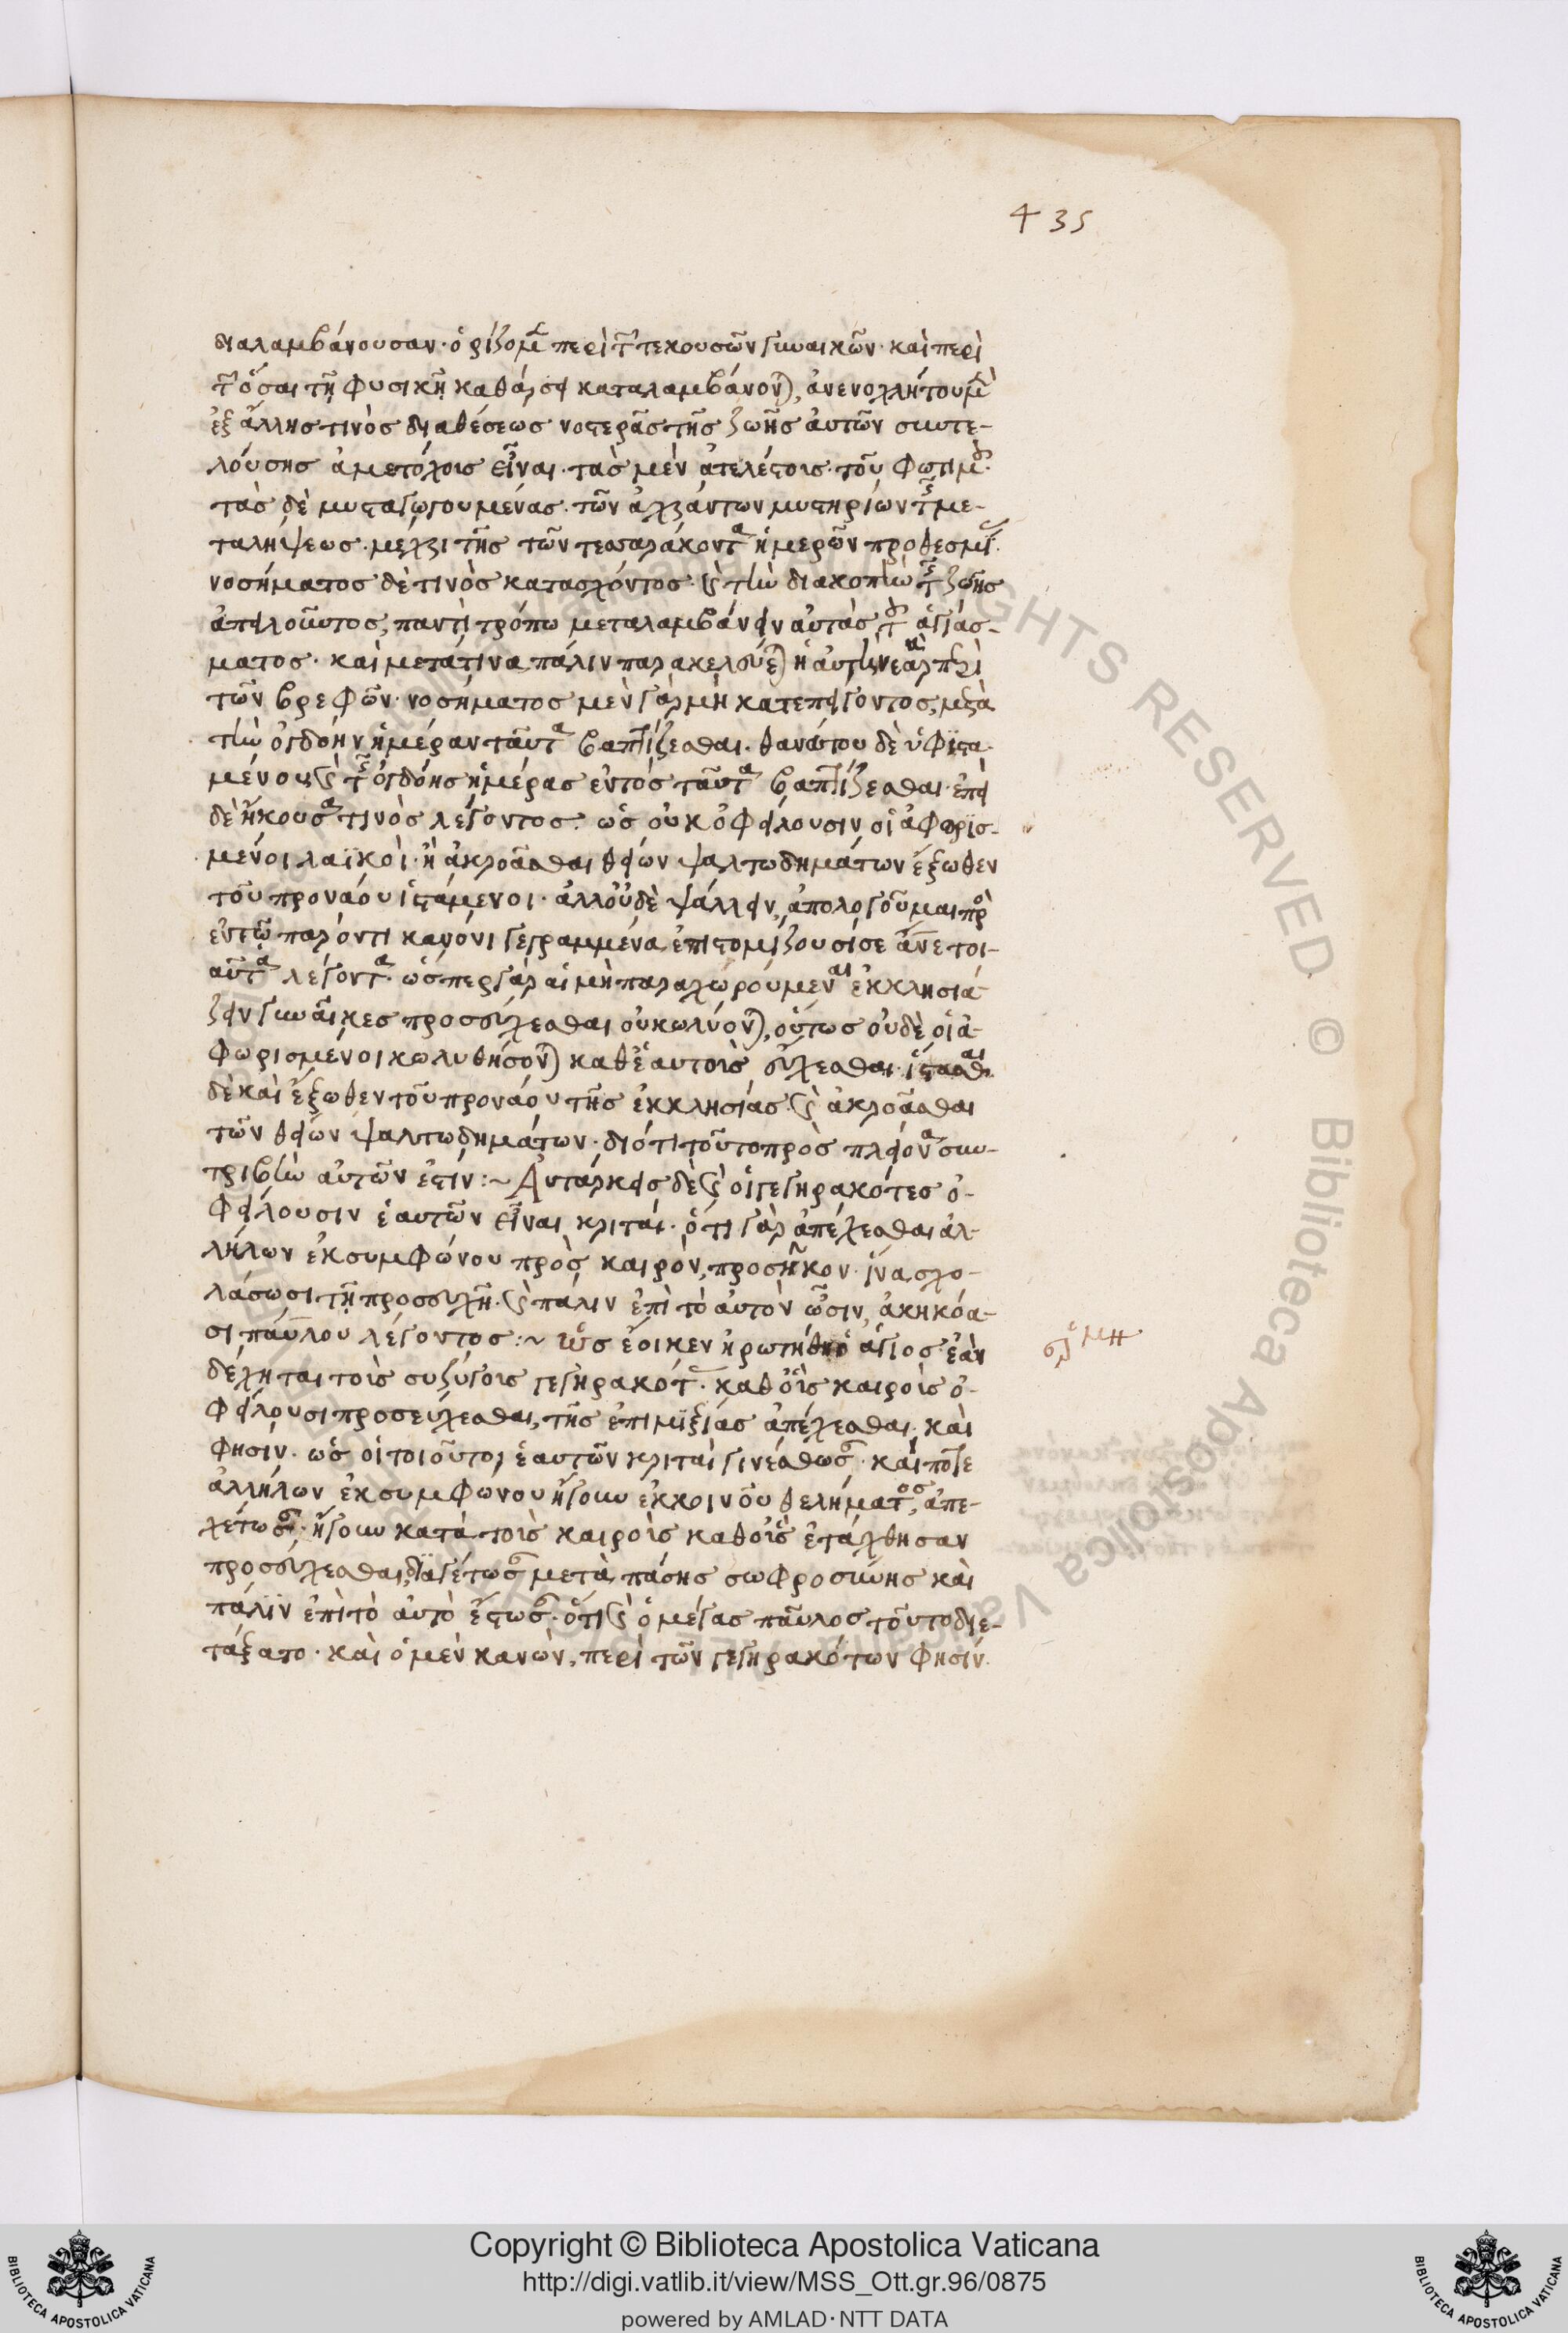 435
διαλαμβάνουσαν· ὁρίζομ περὶ τ τεκουσῶν γυναικῶν· καὶ περὶ
τ ὅσαι τῆ φυσικῆ καθάρσει καταλαμβάνον, ἀνενοχλήτου μ
ἐξ ἄλλης τινὸς διαθέσεως νοτερᾶς τῆς ζωῆς αὐτῶν συντε-
λούσης ἀμετόχοις εἶναι· τὰς μὲν ἀτελέστοις τοῦ φωτι
τὰς δὲ μυσταγωγουμένας· τῶν ἀχράντων μυστηρίων τ με-
ταλήψεως· μέχρι τῆς τῶν τεσσαράκοντα ἡμερῶν προθεσμί
νοσήματος δὲ τινὸς κατασχόντος· καὶ τὴν διακοπὴν τ ζωῆς
ἀπειλοῦντος, παντὶ τρόπω μεταλαμβάνειν αὐτὰς τ ἁγιάσ-
ματος· καὶ μετά τινα πάλιν παρακελεύε ἡ αὐτὴ νεαρὰ περὶ
τῶν βρεφῶν· νοσήματος μὲν γὰρ μὴ κατεπείγοντος, μετὰ
τὴν ὀγδόην ἡμέραν ταῦτα βαπτίζεσθαι· θανάτου δὲ ὑφιστα-
μένου, καὶ τ ὀγδόης ἡμέρας ἐντὸς ταῦτα βαπτίζεσθαι· ἐπεὶ
δὲ ἤκουσα τινὸς λέγοντος· ὡς οὐκ ὀφείλουσιν οἱ ἀφωρισ-
μένοι λαϊκοὶ· ἢ ἀκροᾶσθαι θείων ψαλτωδημάτων ἔξωθεν
τοῦ προνάου ἱστάμενοι· ἀλλ' οὐδὲ ψάλλειν, ἀπολογοῦμαι πρὸ
ἐν τῶ παρόντι κανόνι γεγραμμένα ἐπιστομίζουσί σε ἄνε τοι-
αῦτα λέγοντα· ὥσπερ γὰρ αἱ μὴ παραχωρούμεναι ἐκκλησιά-
ζειν γυναῖκες προσεύχεσθαι οὐ κωλύον, οὕτως οὐδὲ οἱ ἀ-
φωρισμένοι κωλυθήσον καθ' ἑαυτοὺς εὔχεσθαι· ἵστασθαι
δὲ καὶ ἔξωθεν τοῦ προνάου τῆς ἐκκλησίας· καὶ ἀκροᾶσθαι
τῶν θείων ψαλτωδημάτων· διότι τοῦτο πρὸς πλείονα συν-
τριβὴν αὐτῶν ἐστιν:~ Αὐτάρκεις δὲ καὶ οἱ γεγηρακότες ὀ-
φείλουσιν ἑαυτῶν εἶναι κριταί· ὅτι γὰρ ἀπέχεσθαι ἀλ-
λήλων ἐκ συμφώνου πρὸς καιρὸν, προσῆκον· ἵνα σχο-
λάσωσι τῆ προσευχῆ· καὶ πάλιν ἐπὶ τὸ αὐτὸν ὦσιν, ἀκηκόα-
σι παύλου λέγοντος:~ ὡς ἔοικεν ἠρωτήθη ὁ ἅγιος ἐὰν
δέχηται τοῖς συζύγοις γεγηρακότ· καθ' οἷς καιροῖς ὀ-
φείλουσι προσεύχεσθαι, τῆς ἐπιμιξίας ἀπέχεσθαι, καὶ
φησιν· ὡς οἱ τοιοῦτοι ἑαυτῶν κριταὶ γινέσθωσαν· καὶ ποτε
ἀλλήλων ἐκ συμφώνου ἤγουν ἐκ κοινοῦ θελήματος, ἀπε-
χέτωσαν· ἤγουν κατὰ τοῖς καιροῖς καθ' οἷς ἐτάχθησαν
προσεύχεσθαι, διαγέτωσαν μετὰ πάσης σωφροσύνης καὶ
πάλιν ἐπὶ τὸ αὐτὸ ἔστωσαν· ὅτι καὶ ὁ μέγας παῦλος τοῦτο διε-
τάξατο· καὶ ὁ μὲν κανὼν, περὶ τῶν γεγηρακότων φησίν
Copyright © Biblioteca Apostolica Vaticana
http://digi.vatlib.it/view/MSS_Ott.gr.96/0875
powered by AMLAD · NTT DATA
BIBLIOTECA APOSTOLICA VATICANA
BIBLIOTECA APOSTOLICA VATICANA